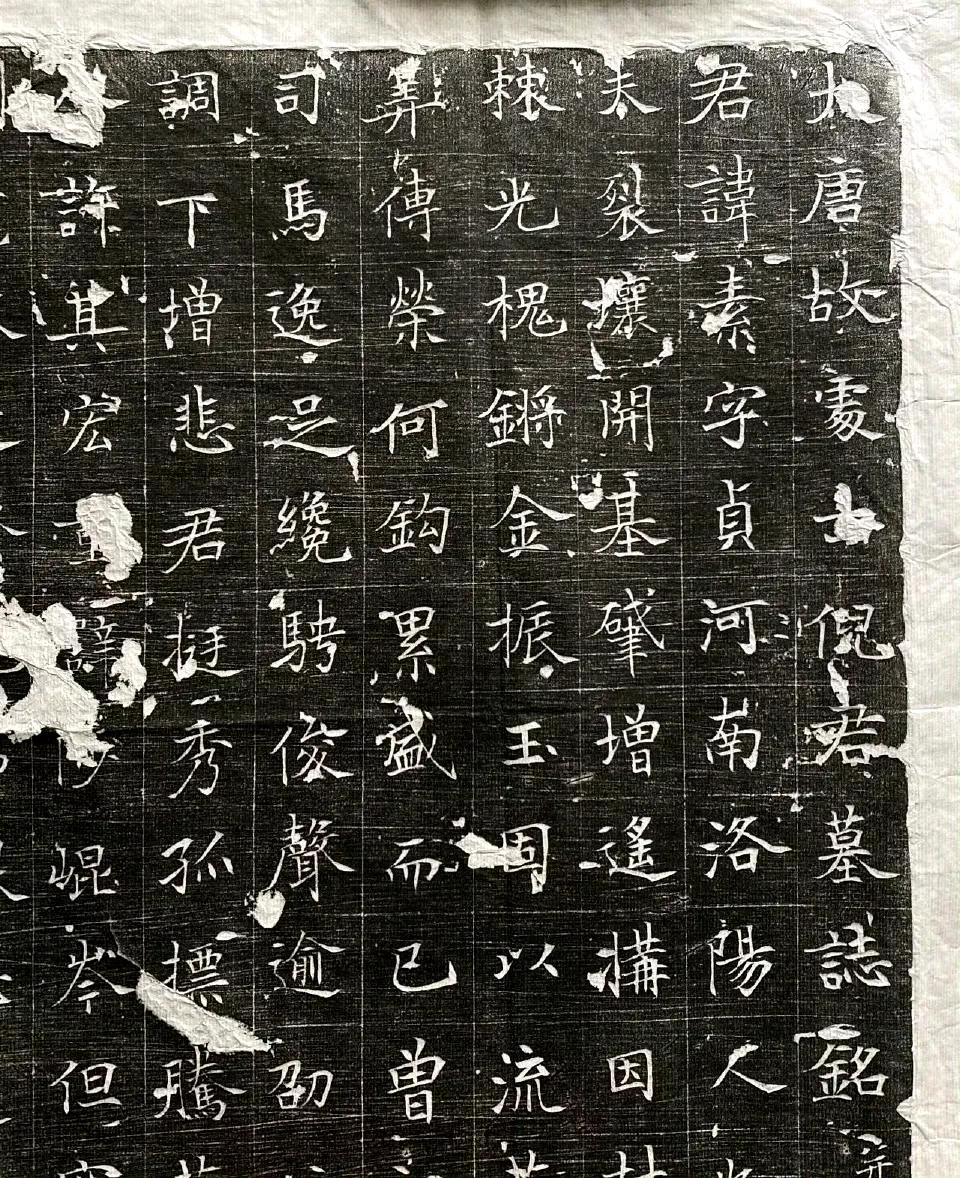 大唐故處士倪君墓誌銘并
君諱素字貞河南洛陽人
夫裂壤開基肇增遙構因
棘光槐鏘金振玉固以流
筭傳榮何鈞累盛而已曾
司馬逸足纔騁俊聲逾劭
調下增悲君挺秀孤標騰
許其宏崐岑但